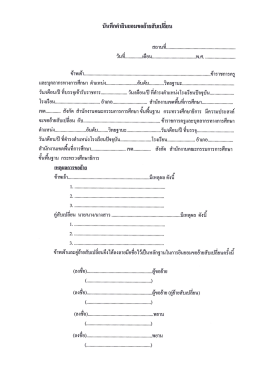 บันทึกคำยินยอมขอย้ายสับเปลี่ยน
สถานที่...............................................
วันที่.............เดือน..............................พ.ศ. .....................
ข้าพเจ้า..........................................................................................ข้าราชการครู
และบุคลากรทางการศึกษา ตำแหน่ง.....................อันดับ..........วิทยฐานะ..............................
วันเดือนปี ที่บรรจุเข้ารับราชการ .................. วันเดือนปี ที่ดำรงตำแหน่งโรงเรียนปัจจุบัน.................
โรงเรียน..............................อำเภอ.......................... สำนักงานเขตพื้นที่การศึกษา.......................
เขต............ สังกัด สำนักงานคณะกรรมการการศึกษา ขั้นพื้นฐาน กระทรวงศึกษาธิการ มีความประสงค์
จะขอย้ายสับเปลี่ยน กับ ........................................................ ข้าราชการครูและบุคลากรทางการศึกษา
ตำแหน่ง.....................อันดับ..............วิทยฐานะ........................ วันเดือนปี ที่บรรจุ.......................
วันเดือนปี ที่ดำรงตำแหน่งโรงเรียนปัจจุบัน.........................โรงเรียน......................อำเภอ..................
สำนักงานเขตพื้นที่การศึกษา........................เขต................ สังกัด สำนักงานคณะกรรมการการศึกษา
ขั้นพื้นฐาน กระทรวงศึกษาธิการ
เหตุผลการขอย้าย
ข้าพเจ้า..........................................................มีเหตุผล ดังนี้
1. ..............................................................
2. ..............................................................
3. ..............................................................
คู่สับเปลี่ยน นาย/นาง/นางสาว .............................................มีเหตุผล ดังนี้
1. ..............................................................
2. ..............................................................
3. ..............................................................
ข้าพเจ้าและคู่ย้ายสับเปลี่ยนจึงได้ลงลายมือชื่อไว้เป็นหลักฐานในการยินยอมขอย้ายสับเปลี่ยนครั้งนี้
(ลงชื่อ)..........................................ผู้ขอย้าย
(..........................................)
(ลงชื่อ)..........................................ผู้ขอย้าย (คู่ย้ายสับเปลี่ยน)
(..........................................)
(ลงชื่อ)..........................................พยาน
(..........................................)
(ลงชื่อ)..........................................พยาน
(..........................................)